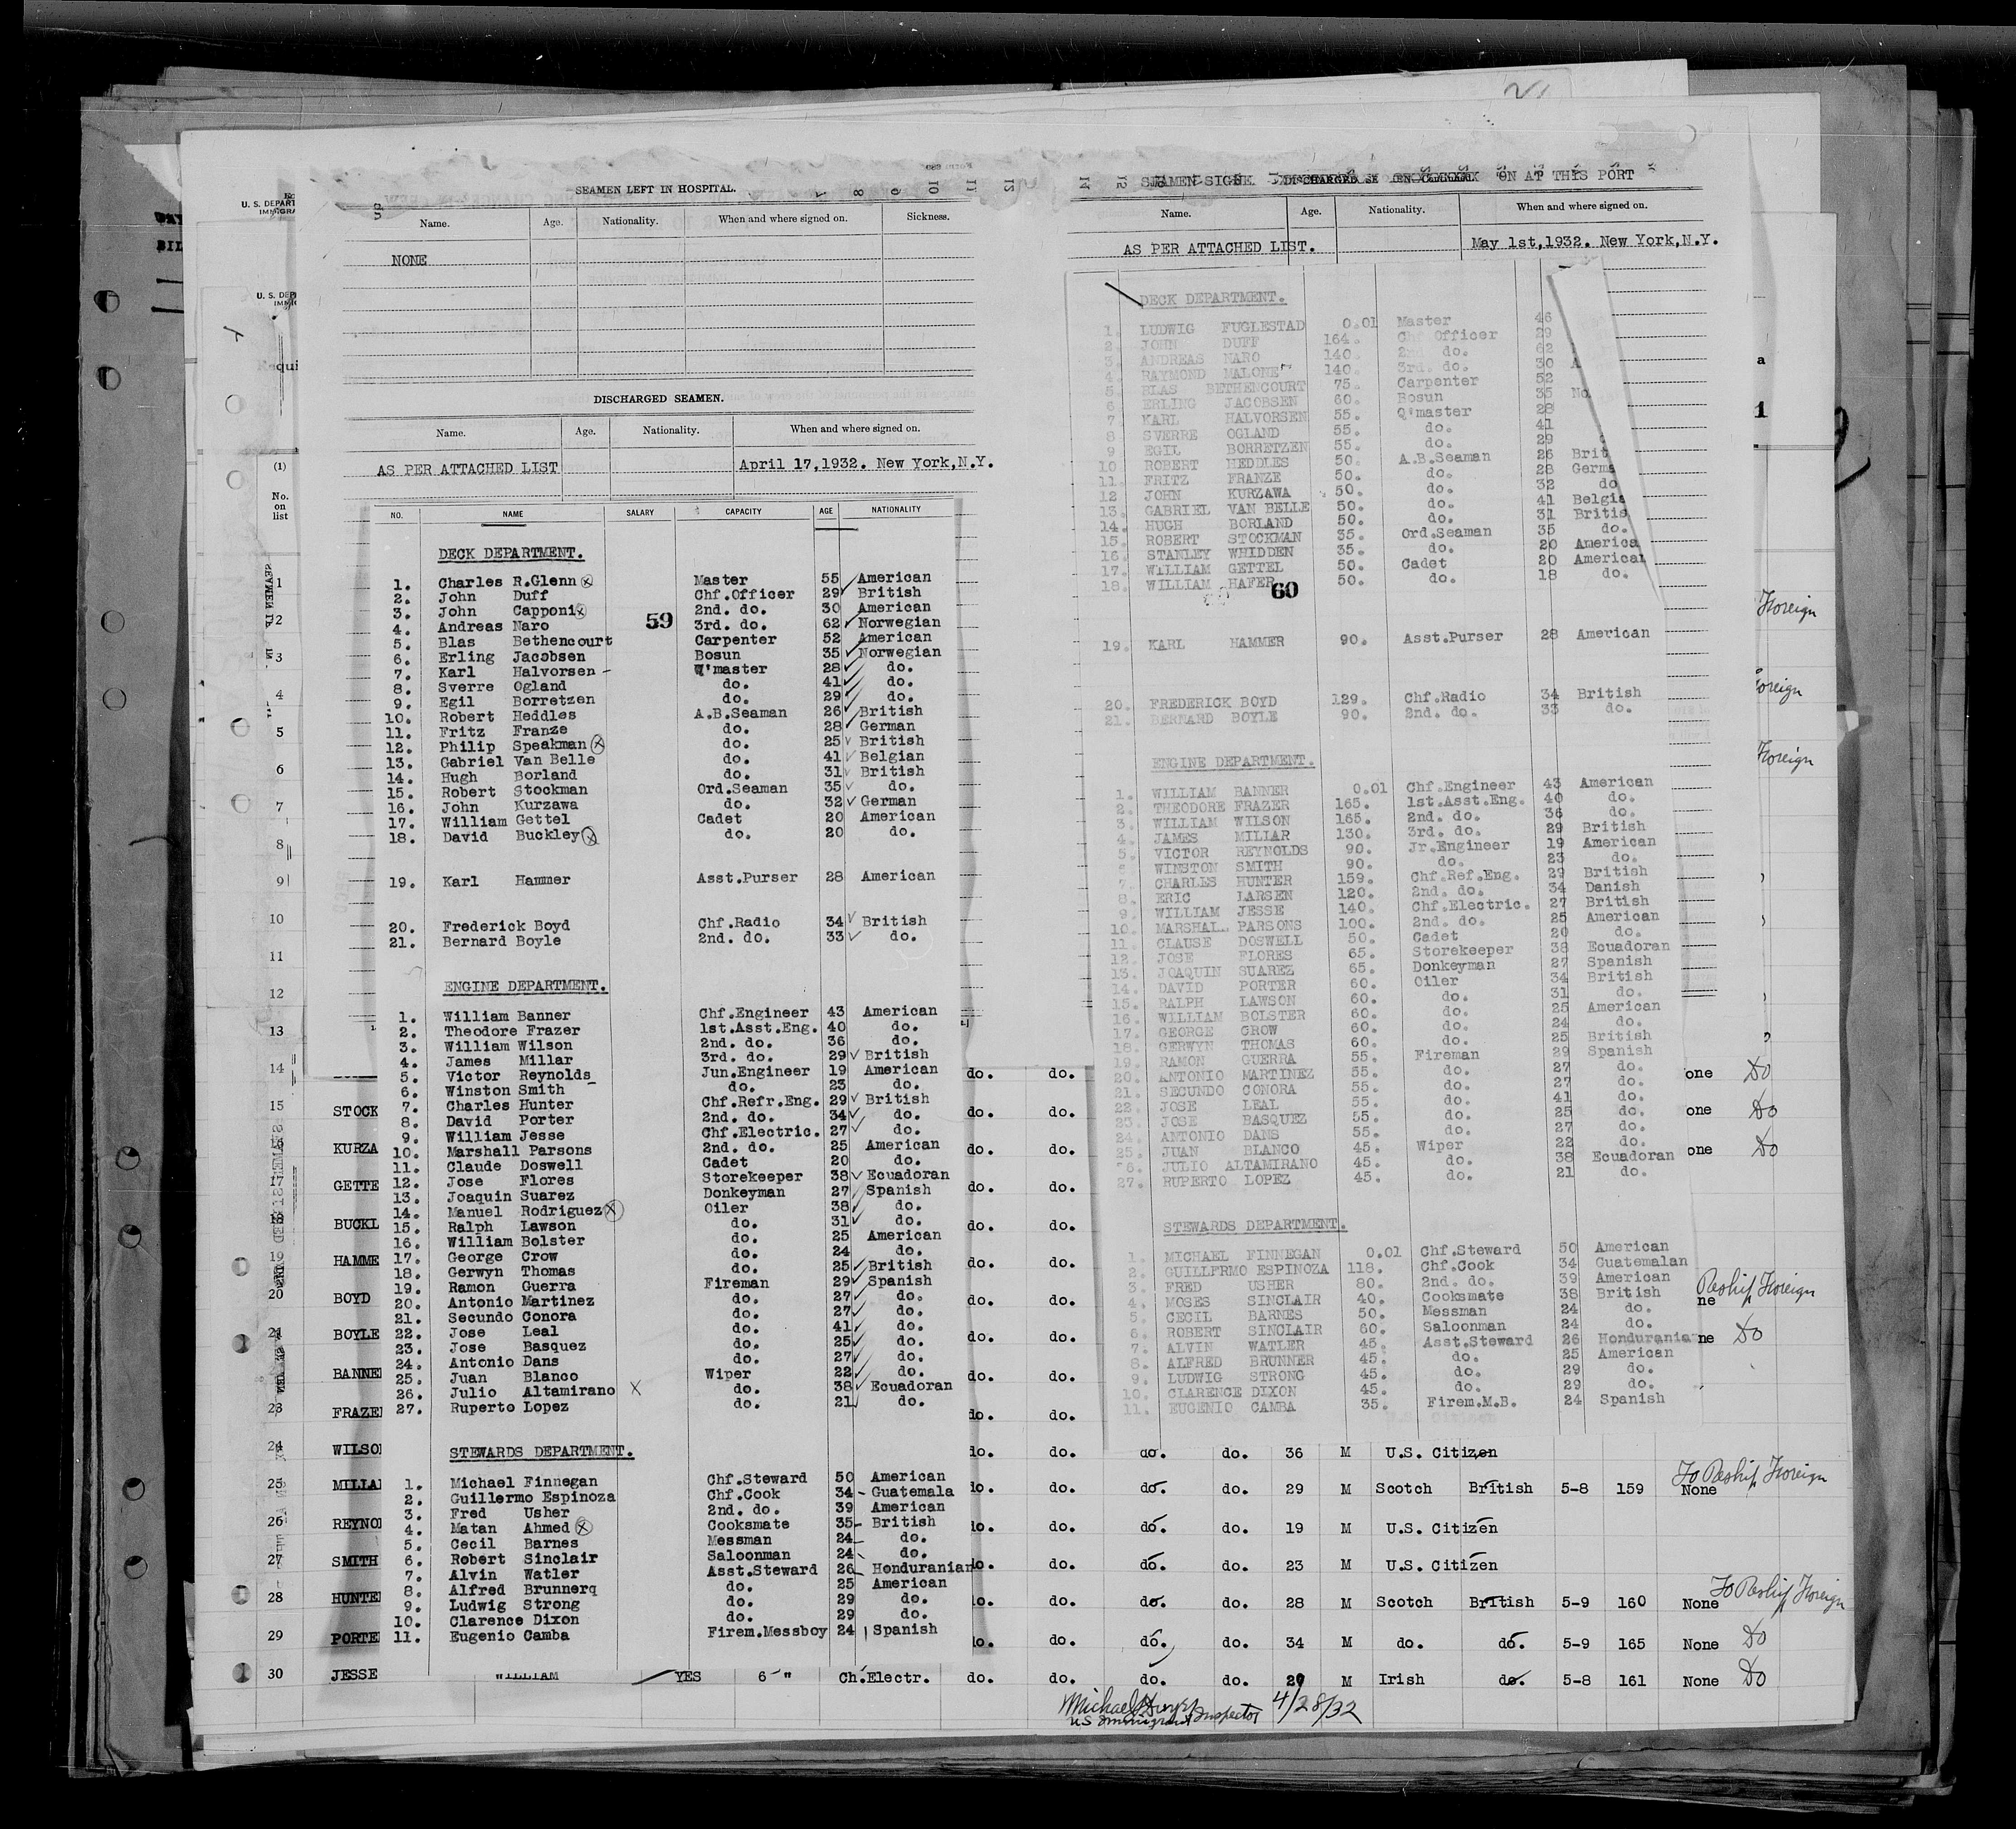 SEAMEN LEFT IN HOSPITAL.
Name. Age. Nationality. When and where signed on. Sickness.
NONE
DISCHARGED SEAMEN.
Name. Age. Nationality. When and where signed on.
AS PER ATTACHED LIST April 17,1932. New York,N.Y.
NO. NAME SALARY CAPACITY AGE NATIONALITY
DECK DEPARTMENT.
1. Charles R.Glenn Master 55 American
2. John Duff Chf.Officer 29 British
3. John Capponi 2nd. do. 30 American
59
4. Andreas Naro 3rd. do. 62 Norwegian
5. Blas Bethencourt Carpenter 52 American
6. Erling Jacobsen Bosun 35 Norwegian
7. Karl Halvorsen Q'master 28 do.
8. Sverre Ogland do. 41 do.
9. Egil Borretzen do. 29 do.
10. Robert Heddles A.B.Seaman 26 British
11. Fritz Franze do. 28 German
12. Philip Speakman do. 25 British
13. Gabriel Van Belle do. 41 Belgian
14. Hugh Borland do. 31 British
15. Robert Stockman Ord.Seaman 35 do.
16. John Kurzawa do. 32 German
17. William Gettel Cadet 20 American
18. David Buckley do. 20 do.
19. Karl Hammer Asst.Purser 28 American
20. Frederick Boyd Chf.Radio 34 British
21. Bernard Boyle 2nd. do. 33 do.
ENGINE DEPARTMENT.
1. William Banner Chf.Engineer 43 American
2. Theodore Frazer 1st.Asst.Eng. 40 do.
3. William Wilson 2nd. do. 36 do.
4. James Millar 3rd. do. 29 British
5. Victor Reynolds Jun.Engineer 19 American
6. Winston Smith do. 23 do.
7. Charles Hunter Chf.Refr.Eng. 29 British
8. David Porter 2nd. do. 34 do.
9. William Jesse Chf.Electric. 27 do.
10. Marshall Parsons 2nd. do. 25 American
11. Claude Doswell Cadet 20 do.
12. Jose Flores Storekeeper 38 Ecuadoran
13. Joaquin Suarez Donkeyman 27 Spanish
14. Manuel Rodriguez Oiler 38 do.
15. Ralph Lawson do. 31 do.
16. William Bolster do. 25 American
17. George Crow do. 24 do.
18. Gerwyn Thomas do. 25 British
19. Ramon Guerra Fireman 29 Spanish
20. Antonio Martinez do. 27 do.
21. Secundo Conora do. 27 do.
22. Jose Leal do. 41 do.
23. Jose Basquez do. 25 do.
24. Antonio Dans do. 27 do.
25. Juan Blanco Wiper 22 do.
26. Julio Altamirano X do. 38 Ecuadoran
27. Ruperto Lopez do. 21 do.
STEWARDS DEPARTMENT.
1. Michael Finnegan Chf.Steward 50 American
2. Guillermo Espinoza Chf.Cook 34 Guatemala
3. Fred Usher 2nd. do. 39 American
4. Matan Ahmed Cooksmate 35 British
5. Cecil Barnes Messman 24 do.
6. Robert Sinclair Saloonman 24 do.
7. Alvin Watler Asst.Steward 26 Honduranian
8. Alfred Brunnerq do. 25 American
9. Ludwig Strong do. 29 do.
10. Clarence Dixon do. 29 do.
11. Eugenio Camba Firem.Messboy 24 Spanish
ON AT THIS PORT
Name. Age. Nationality. When and where signed on.
AS PER ATTACHED LIST. May 1st,1932. New York,N.Y.
DECK DEPARTMENT.
1. LUDWIG FUGLESTAD 0.01 Master 46
2. JOHN DUFF 164. Chf Officer 29
3. ANDREAS NARO 140. 2 do. 62
4. RAYMOND MALONE 140. 3rd. do. 30 A
5. BLAS BETHENCOURT 75. Carpenter 52
6 ERLING JACOBSEN 60. Bosun 35 No
7. KARL HALVORSEN 55. Q'master 28
8 SVERRE OGLAND 55. do. 41
9 EGIL BORRETZEN 55. do. 29
10 ROBERT HEDDLES 50. A.B.Seaman 26 Brit
11. FRITZ FRANZE 50. do. 28 Germa
12 JOHN KURZAWA 50. do. 32 do
13. GABRIEL VAN BELLE 50. do. 41 Belgia
14. HUGH BORLAND 50. do. 31 Britis
15. ROBERT STOCKMAN 35. Ord.Seaman 35 do.
16. STANLEY WHIDDEN 35. do. 20 America
17. WILLIAM GETTEL 50. Cadet 20 American
18. WILLIAM HAFER 50. do. 18 do.
60
19. KARL HAMMER 90. Asst.Purser 28 American
20. FREDERICK BOYD 129. Chf.Radio 34 British
21. BERNARD BOYLE 90. 2nd. do. 33 do.
ENGINE DEPARTMENT.
1. WILLIAM BANNER 0.01 Chf.Engineer 43 American
2. THEODORE FRAZER 165. 1st.Asst.Eng. 40 do.
3. WILLIAM WILSON 165. 2nd. do. 36 do.
4. JAMES MILLAR 130. 3rd. do. 29 British
5. VICTOR REYNOLDS 90. Jr.Engineer 19 American
6 WINSTON SMITH 90. do. 23 do.
7. CHARLES HUNTER 159. Chf.Ref.Eng. 29 British
8. ERIC LARSEN 120. 2nd. do. 34 Danish
9. WILLIAM JESSE 140. Chf.Electric. 27 British
10. MARSHAL PARSONS 100. 2nd. do. 25 American
11. CLAUSE DOSWELL 50. Cadet 20 do.
12. JOSE FLORES 65. Storekeeper 38 Ecuadoran
13. JOAQUIN SUAREZ 65. Donkeyman 27 Spanish
14. DAVID PORTER 60. Oiler 34 British
15. RALPH LAWSON 60. do. 31 do.
16. WILLIAM BOLSTER 60. do. 25 American
17. GEORGE CROW 60. do. 24 do.
18. GERWYN THOMAS 60. do. 25 British
19. RAMON GUERRA 55. Fireman 29 Spanish
20. ANTONIO MARTINEZ 55. do. 27 do.
21. SECUNDO CONORA 55. do. 27 do.
22. JOSE LEAL 55. do. 41 do.
23. JOSE BASQUEZ 55. do. 25 do.
24. ANTONIO DANS 55. do. 27 do.
25. JUAN BLANCO 45. Wiper 22 do.
26. JULIO ALTAMIRANO 45. do. 38 Ecuadoran
27. RUPERTO LOPEZ 45. do. 21 do.
STEWARDS DEPARTMENT.
1. MICHAEL FINNEGAN 0.01 Chf.Steward 50 American
2. GUILLERMO ESPINOZA 118. Chf.Cook 34 Guatemalan
3. FRED USHER 80. 2nd. do. 39 American
4. MOSES SINCLAIR 40. Cooksmate 38 British
5. CECIL BARNES 50. Messman 24 do.
6. ROBERT SINCLAIR 60. Saloonman 24 do.
7. ALVIN WATLER 45. Asst.Steward 26 Hondurania
8. ALFRED BRUNNER 45. do. 25 American
9. LUDWIG STRONG 45. do. 29 do.
10. CLARENCE DIXON 45. do. 29 do.
11. EUGENIO CAMBA 35. Firem.M.B. 24 Spanish
U. S. DEPART
IMMIGRA
(1)
No.
on
list
1
2 Foreign
3
4 Foreign
5
6 Foreign
7
8
9
10
11
12
13
14 do. do. one Do
15 STOCK do. do. one Do
16 KURZA do. do. one Do
17 GETTE do. do.
18 BUCKL do. do.
19 HAMME do. do.
20 BOYD do. do. ne Reship Foreign
21 BOYLE do. do. ne Do
BANNE do. do.
23 FRAZE do. do.
24 WILSO do. do. do. do. 36 M U.S. Citizen
25 MILLA do. do. do. do. 29 M Scotch British 5-8 159 None To Reship Foreign
26 REYNO do. do. do. do. 19 M U.S. Citizen
27 SMITH do. do. do. do. 23 M U.S. Citizen
28 HUNTE do. do. do. do. 28 M Scotch British 5-9 160 None To Reship Foreign
29 PORTE do. do. do. do. 34 M do. do. 5-9 165 None Do
30 JESSE WILLIAM YES 6 " Ch.Electr. do. do. do. do. 29 M Irish do. 5-8 161 None Do
Michael Dwyer 4/28/32
US Immigrant Inspector